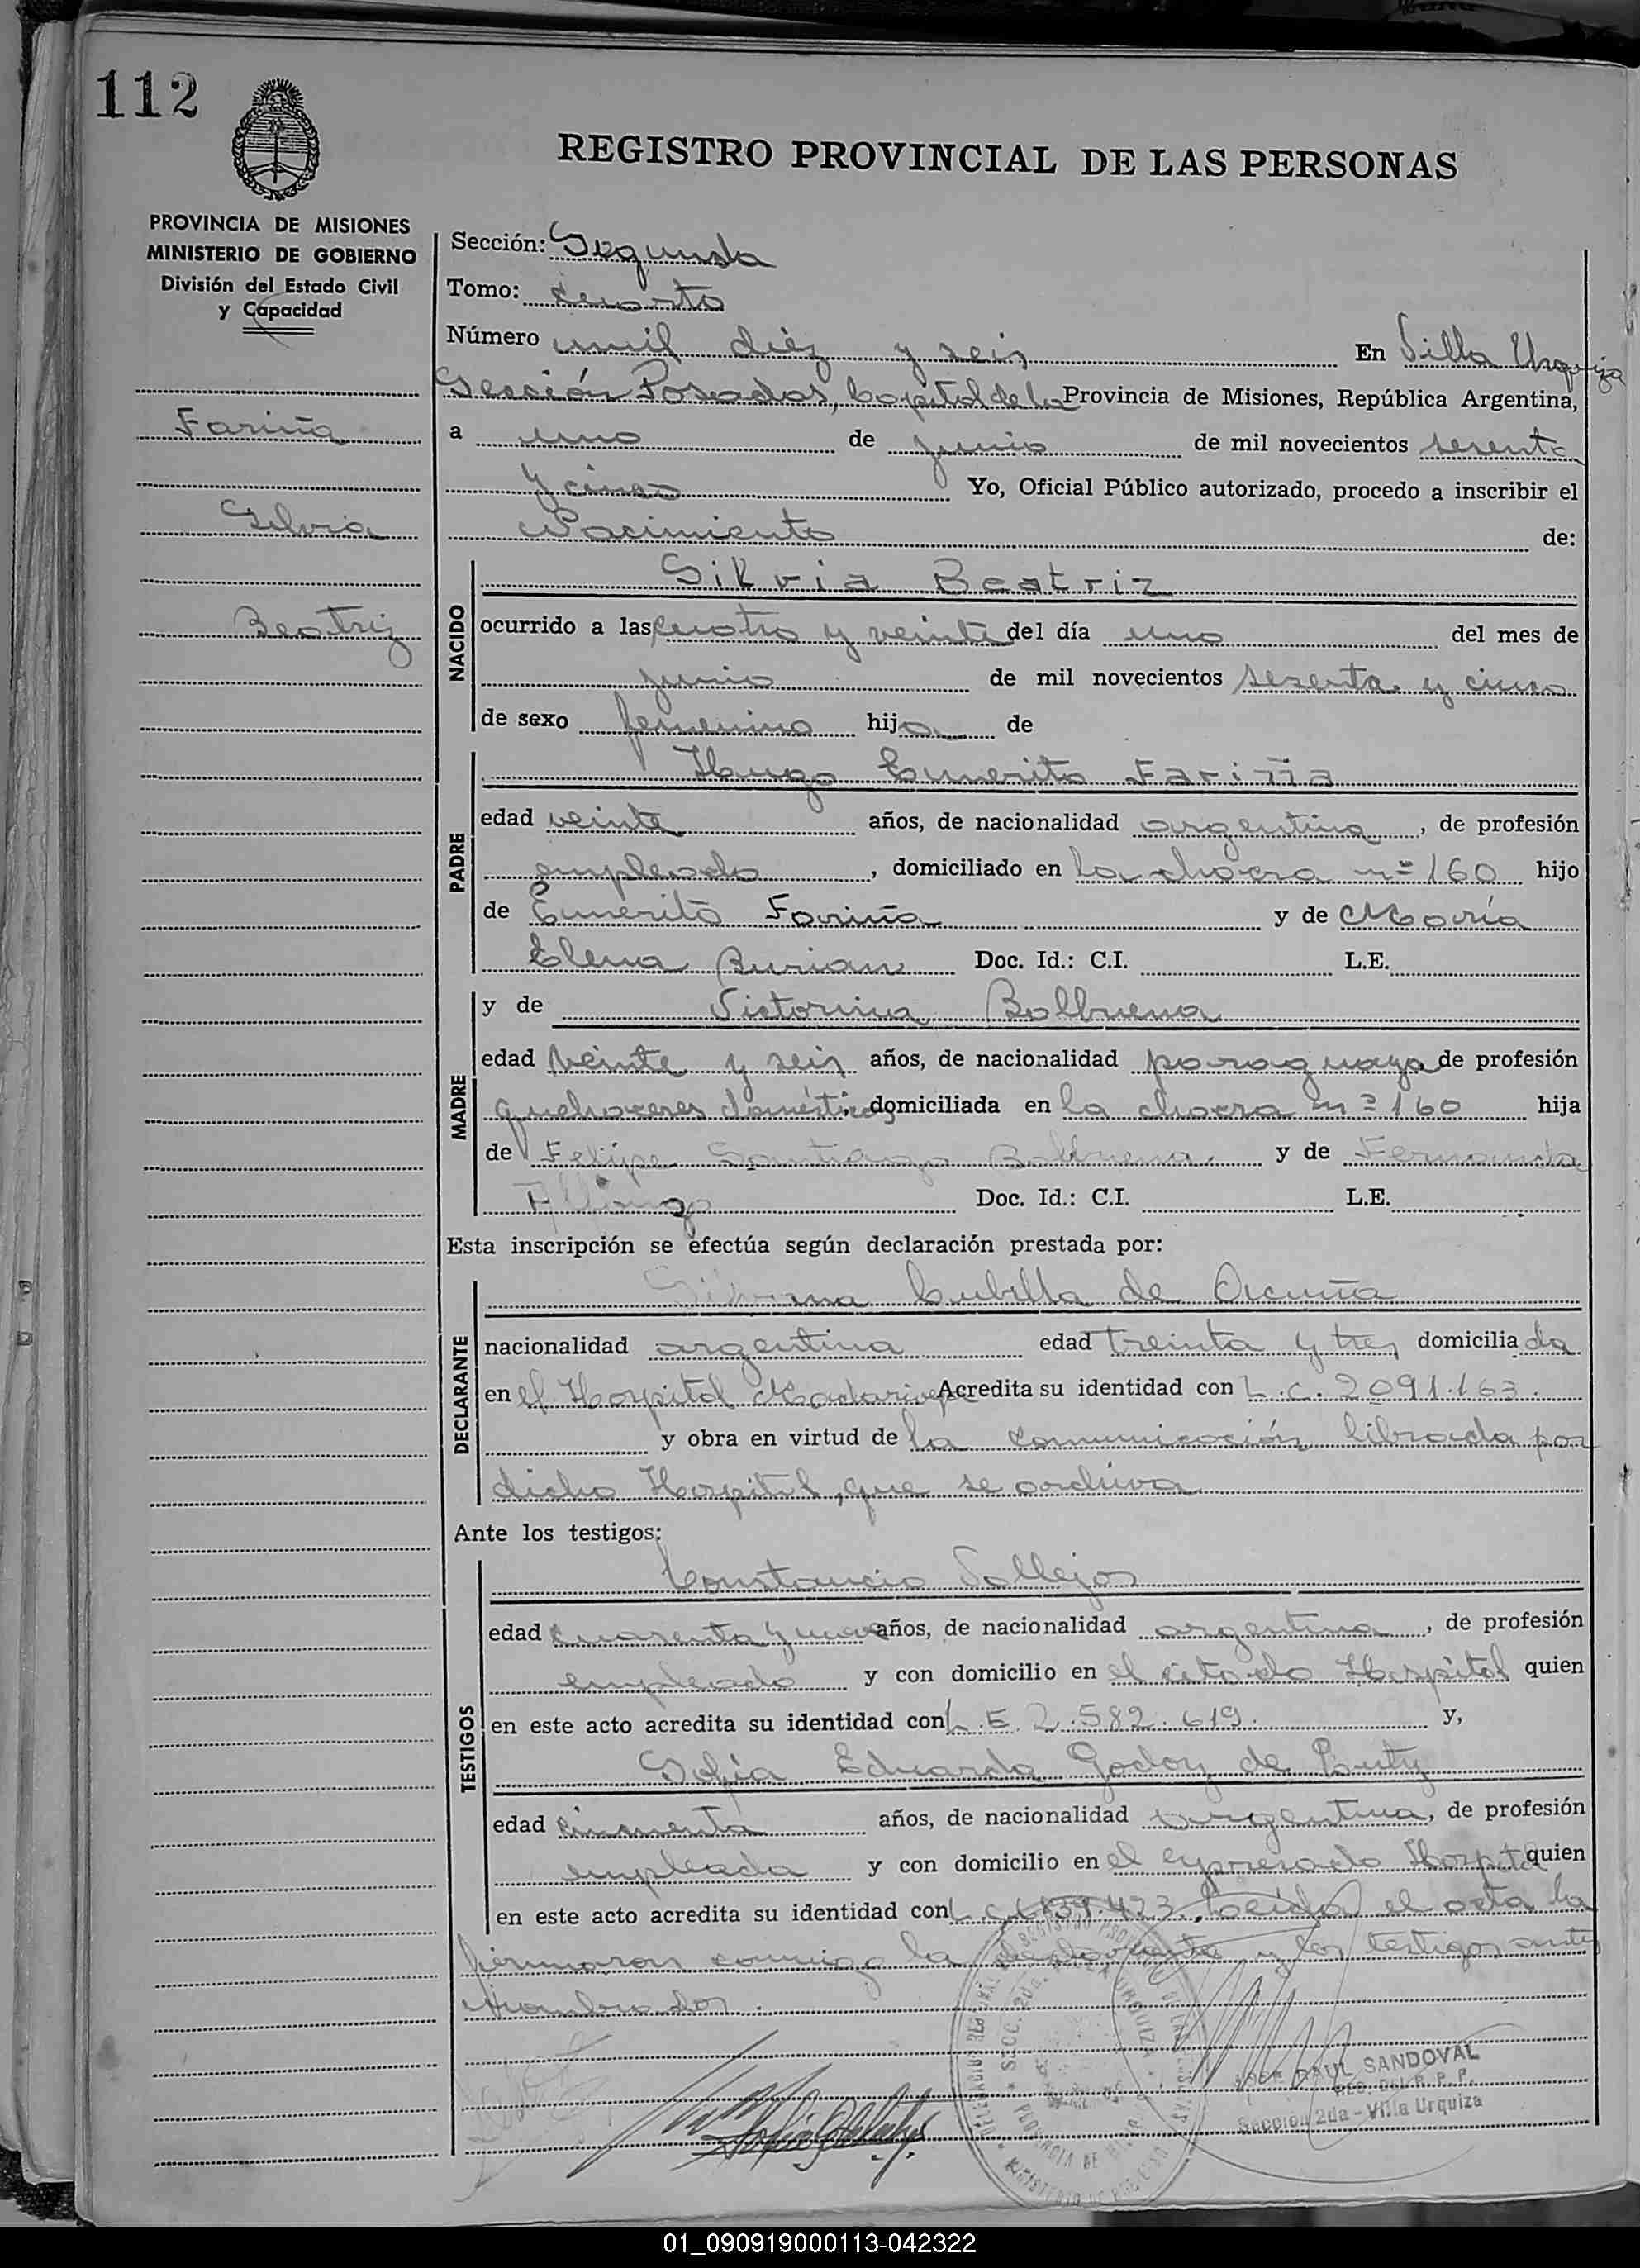 112
REGISTRO PROVINCIAL DE LAS PERSONAS
PROVINCIA DE MISIONES
MINISTERIO DE GOBIERNO
División del Estado Civil
y Capacidad
Fariña
Silvia
Beatriz
Sección: Segunda
Tomo: cuarto
Número mil diéz y seis En Villa Urquiza
Sección Posadas, Capital de la Provincia de Misiones, República Argentina,
a uno de junio de mil novecientos sesenta
y cinco Yo, Oficial Público autorizado, procedo a inscribir el
Nacimiento de:
NACIDO
Silvia Beatriz
ocurrido a las cuatro y veinte del día uno del mes de
junio de mil novecientos sesenta y cinco
de sexo femenino hija de
PADRE
Hugo Emerito Fariña
edad veinte años, de nacionalidad argentina, de profesión
empleado, domiciliado en la chacra nº 160 hijo
de Emerito Fariña y de María
Elena Burian Doc. Id.: C.I. L.E.
MADRE
y de Victorina Balbuena
edad veinte y seis años, de nacionalidad paraguaya de profesión
quehaceres domésticos domiciliada en la chacra nº 160 hija
de Felipe Santiago Balbuena y de Fernanda
Doc. Id.: C.I. L.E.
Esta inscripción se efectúa según declaración prestada por:
DECLARANTE
Cubilla de Ocuña
nacionalidad argentina edad treinta y tres domiciliada
en el Hospital Madariaga Acredita su identidad con L.C. 2.091.163.
y obra en virtud de la comunicación librada por
dicho Hospital, que se archiva
Ante los testigos:
TESTIGOS
Constancio Vallejos
edad cuarenta y años, de nacionalidad argentina, de profesión
empleado y con domicilio en el citado Hospital quien
en este acto acredita su identidad con L.E. 2.582.619. y,
Sofia Eduarda Godoy de
edad cincuenta años, de nacionalidad argentina, de profesión
empleada y con domicilio en el expresado Hospital quien
en este acto acredita su identidad con L.C. Leída el acta la
firmaron conmigo la declarante y los testigos ante
nombrados.
RAUL SANDOVAL
Sección 2da - Villa Urquiza
01_090919000113-042322